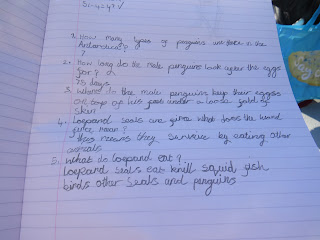 1. How many types of penguins are there in the
Antarctica?
7
2. How long do the male penguins look after the eggs
for?
75 days
3. Where do the male penguins keep their eggs
on top of his feet under a loose fold of
skin
4. Leopard seals are give what does the word
mean?
this means they survive by eating other
animals
5. What do leopard eat?
Leopard seals eat krill squid fish
birds other seals and penguins